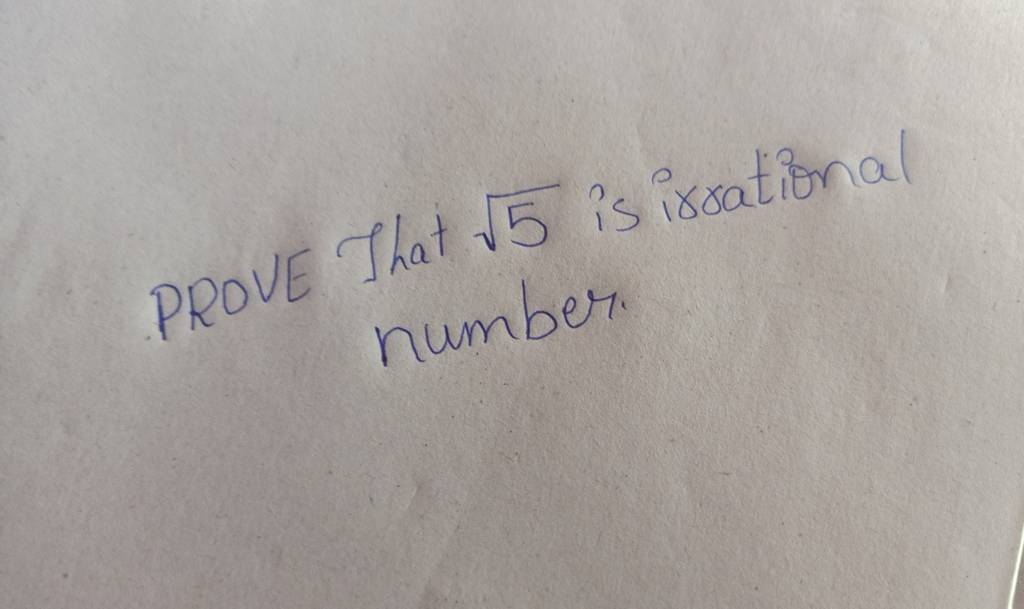 PROVE That √5 is irrational
number.